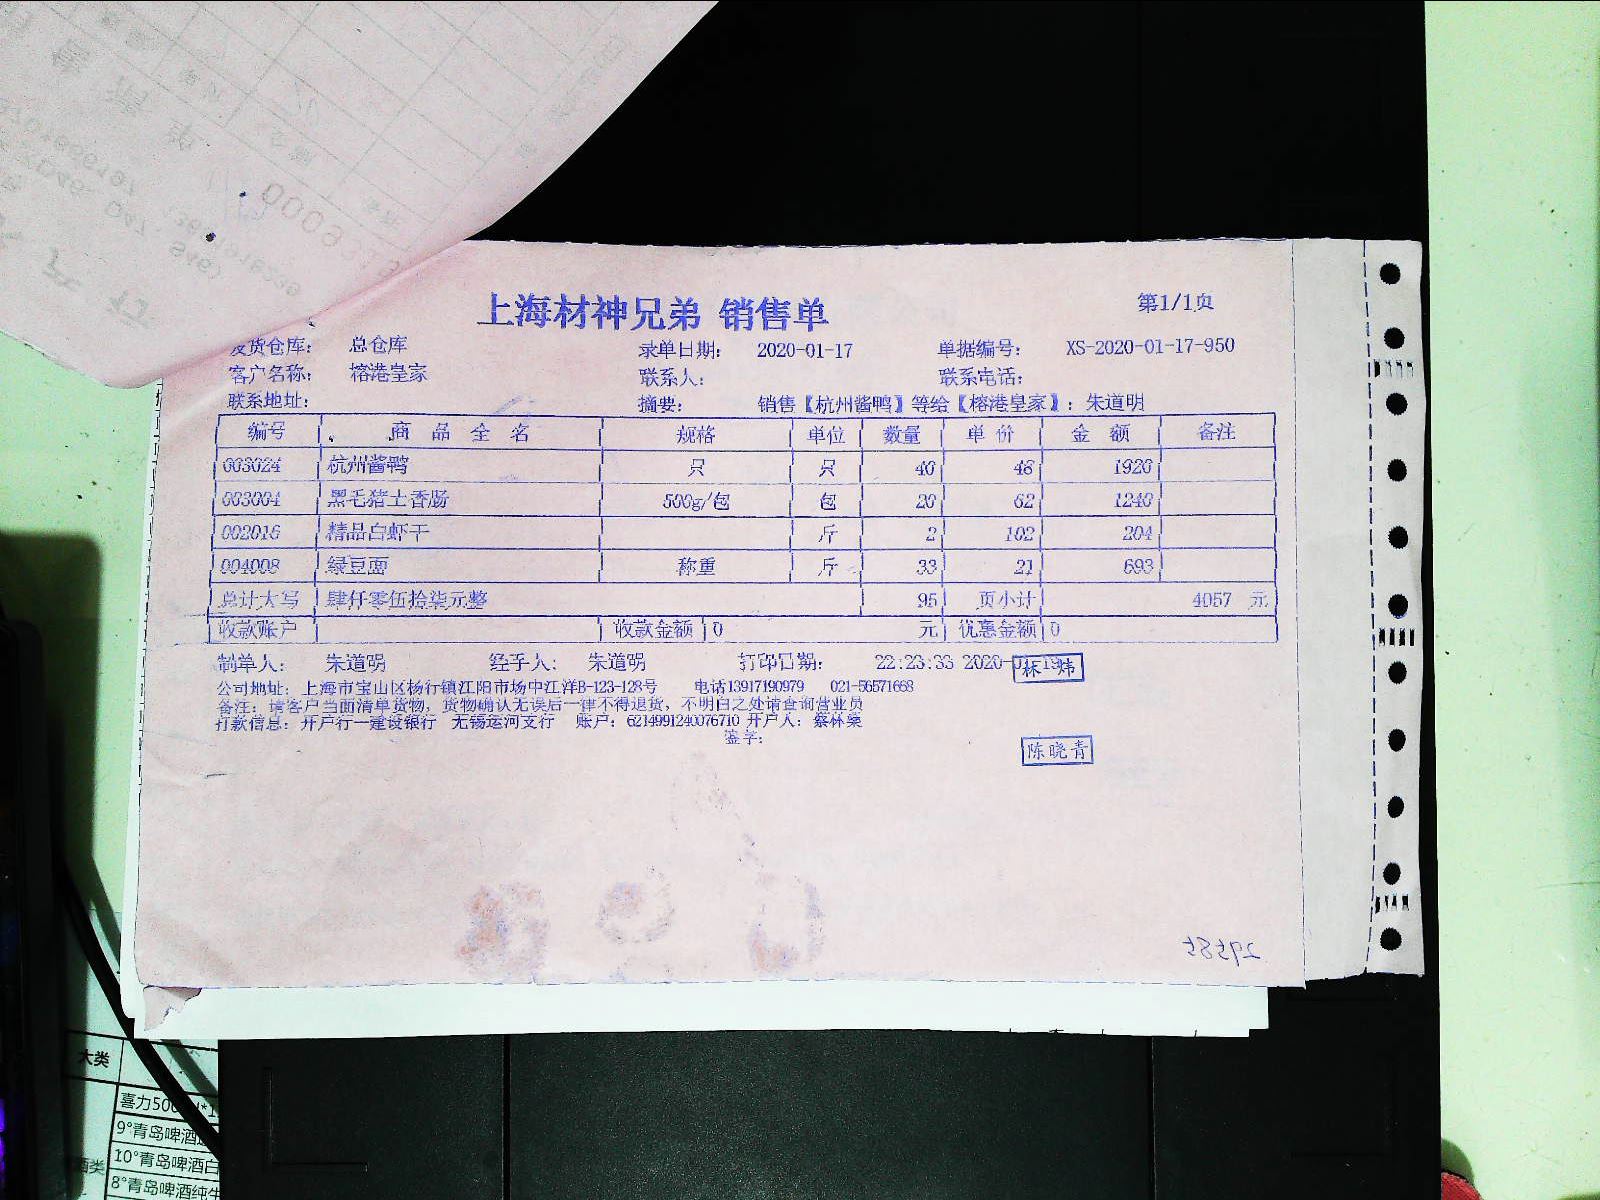 上海材神兄弟 销售单
第1/1页
发货仓库： 总仓库 录单日期： 2020-01-17 单据编号： XS-2020-01-17-950
客户名称： 榕港皇家 联系人： 联系电话：
联系地址： 摘要： 销售【杭州酱鸭】等给【榕港皇家】：朱道明
编号 商 品 全 名 规格 单位 数量 单 价 金 额 备注
003024 杭州酱鸭 只 只 40 48 1920
003004 黑毛猪土香肠 500g/包 包 20 62 1240
002016 精品白虾干 斤 2 102 204
004008 绿豆面 称重 斤 33 21 693
总计大写 肆仟零伍拾柒元整 95 页小计 4057 元
收款账户 收款金额 0 元 优惠金额 0
制单人： 朱道明 经手人： 朱道明 打印日期： 22:23:33 2020-01-19
林 炜
公司地址：上海市宝山区杨行镇江阳市场中江洋B-123-128号 电话13917190979 021-56571668
备注：请客户当面清单货物，货物确认无误后一律不得退货，不明白之处请查询营业员
打款信息：开户行—建设银行 无锡运河支行 账户：6214991240076710 开户人：蔡林燊
签字：
陈晓青
大类
喜力500
9°青岛啤酒
10°青岛啤酒白
8°青岛啤酒纯生
酒类